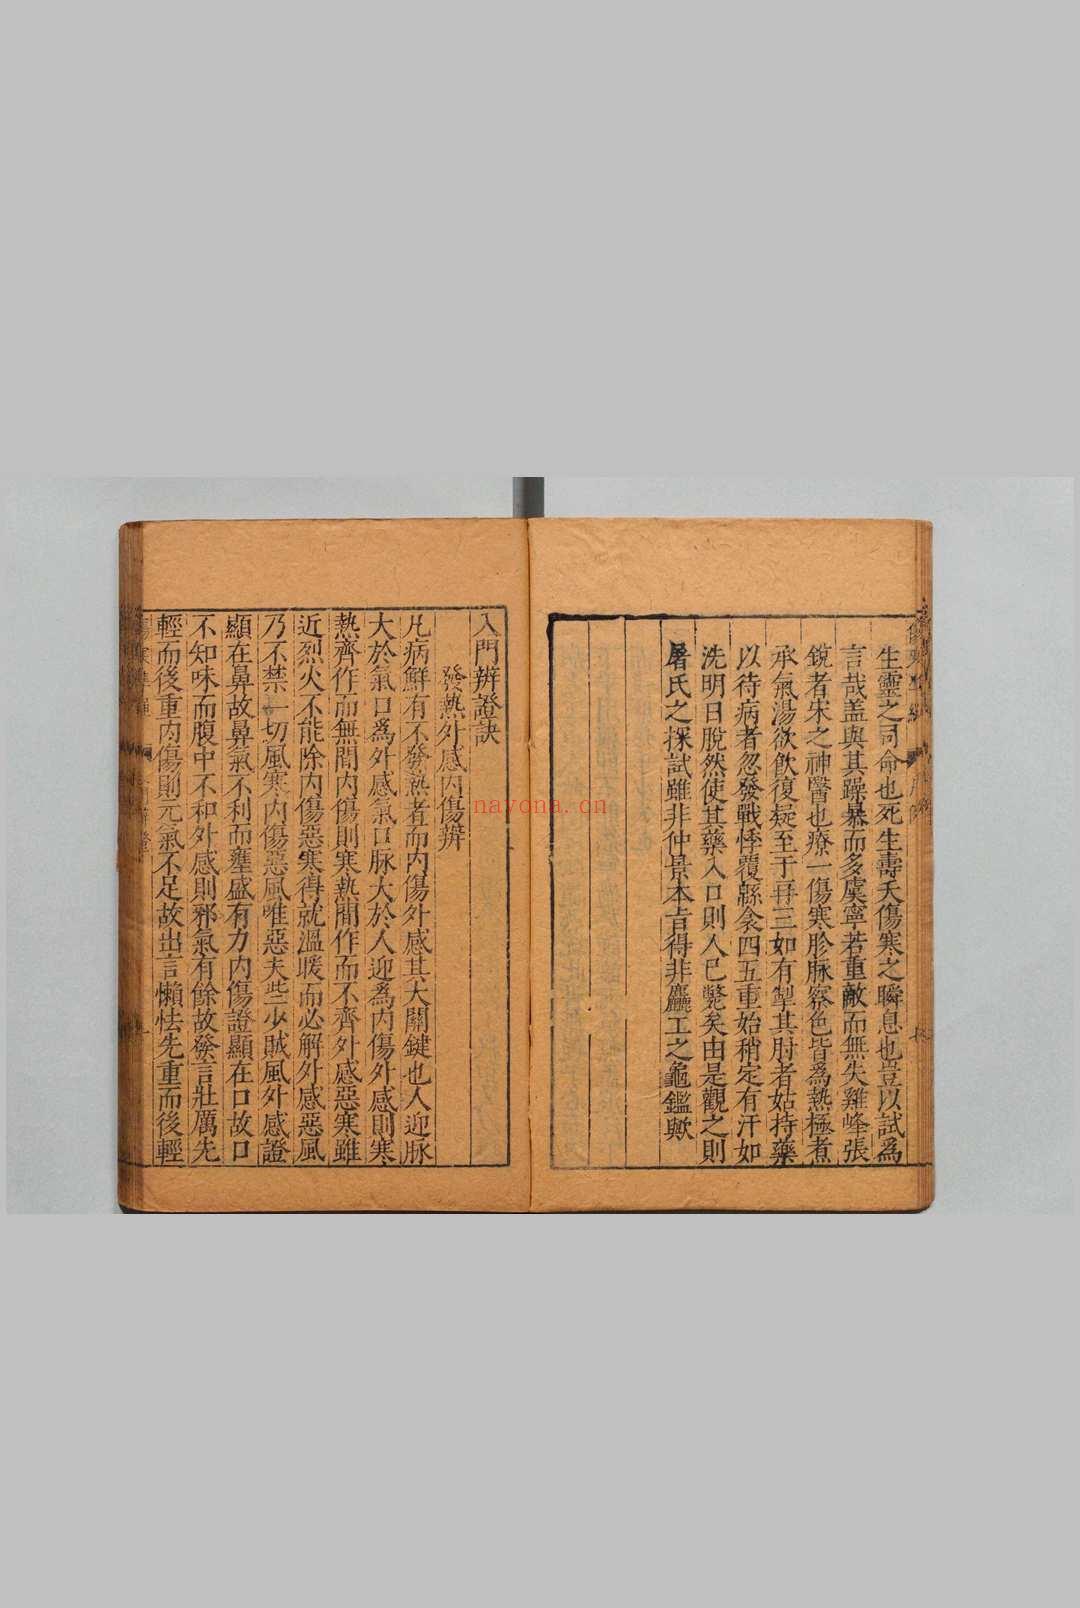 生靈之司命也死生壽夭傷寒之瞬息也豈以試爲
言哉盖與其躁暴而多虞寧若重敵而無失雞峰張
鏡者宋之神醫也療一傷寒胗脉察色皆爲熱極煮
承氣湯欲飲復疑至于再三如有掣其肘者姑持藥
以待病者忽發戰悸覆緜衾四五重始稍定有汗如
洗明日脫然使其藥入口則人已斃矣由是觀之則
屠氏之探試雖非仲景本旨得非麤工之龜鑑歟
入門辨證訣
發熱外感內傷辨
凡病鮮有不發熱者而內傷外感其大關鍵也人迎脉
大於氣口爲外感氣口脉大於人迎爲內傷外感則寒
熱齊作而無間內傷則寒熱間作而不齊外感惡寒雖
近烈火不能除內傷惡寒得就溫暖而必解外感惡風
乃不禁一切風寒內傷惡風唯惡夫些少賊風外感證
顯在鼻故鼻氣不利而壅盛有力內傷證顯在口故口
不知味而腹中不和外感則邪氣有餘故發言壯厲先
輕而後重內傷則元氣不足故出言懶怯先重而後輕
nayona.cn